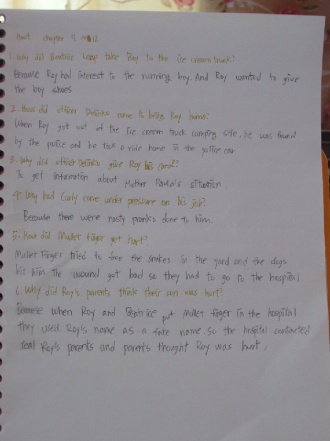 Hoot chapter 9 ~ 12
1. Why did Beatrice Leep take Roy to the ice cream truck?
Because Roy had interest to the running boy. And Roy wanted to give
the boy shoes
2. How did officer Delinko come to bring Roy home?
When Roy got out of the ice cream truck camping site, he was found
by the police and he took a ride home in the police car
3. Why did officer Delinko give Roy his card?
To get information about Mother Paula's situation
4. Why had Curly come under pressure on his job?
Because there were nasty pranks done to him.
5. How did Mullet finger get hurt?
Mullet Finger tried to free the snakes in the yard and the dogs
bit him the wound got bad so they had to go to the hospital
6. Why did Roy's parents think their son was hurt?
When Roy and Beatrice put mullet finger in the hospital
they used Roy's name as a fake name. So the hospital contacted
real Roy's parents and parents thought Roy was hurt.